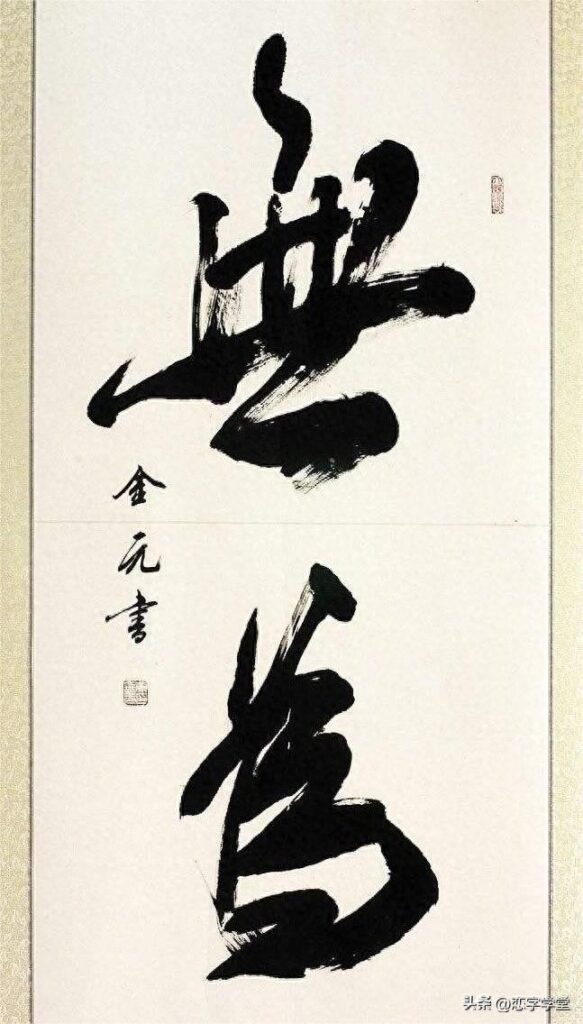 無為
金元書
头条 @恋字学堂